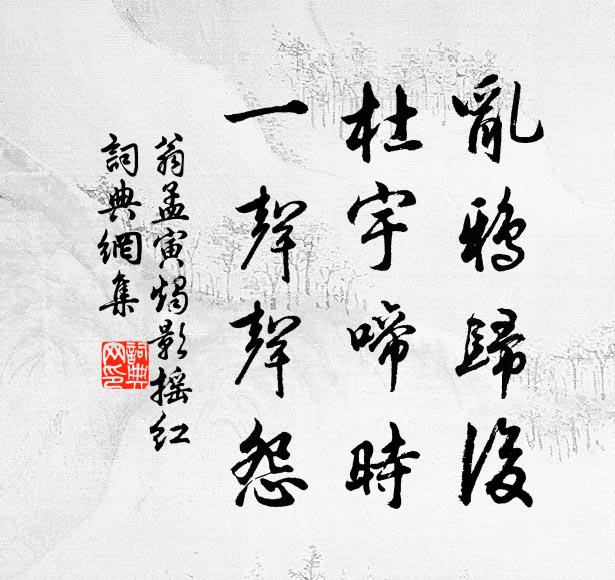 亂鴉歸後
杜宇啼時
一聲聲怨
翁孟寅燭影摇紅
詞典網集
詞典網印